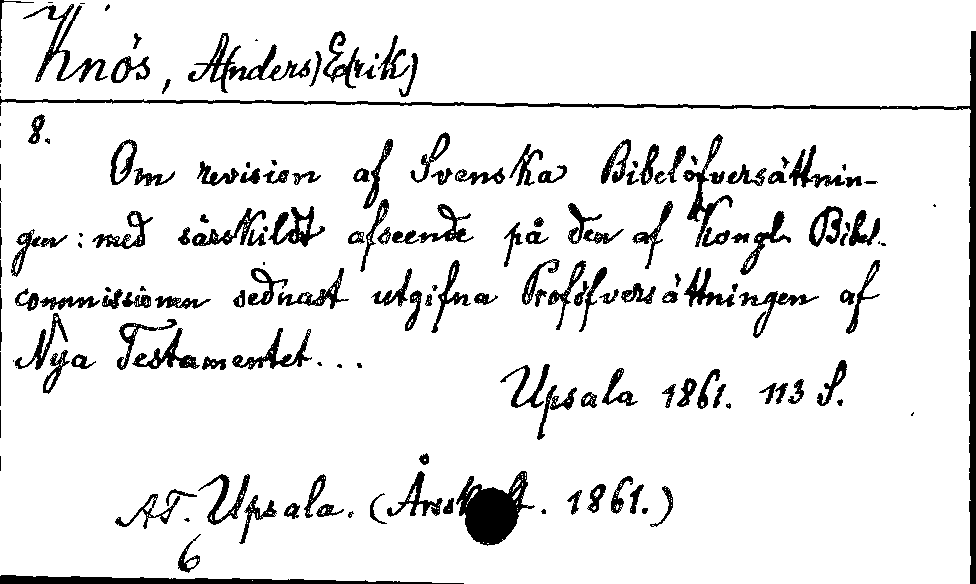 Knös, A(nders) E(rik)
8.
Om revision af Svenska Bibelöfversättnin-
gen: med särskildt afseende på den af Kongl. Bibel-
commissionen sednast utgifna Proföfversättningen af
Nya Testamentet...
Upsala 1861. 113 S.
AT. Upsala. ( 1861.)
6